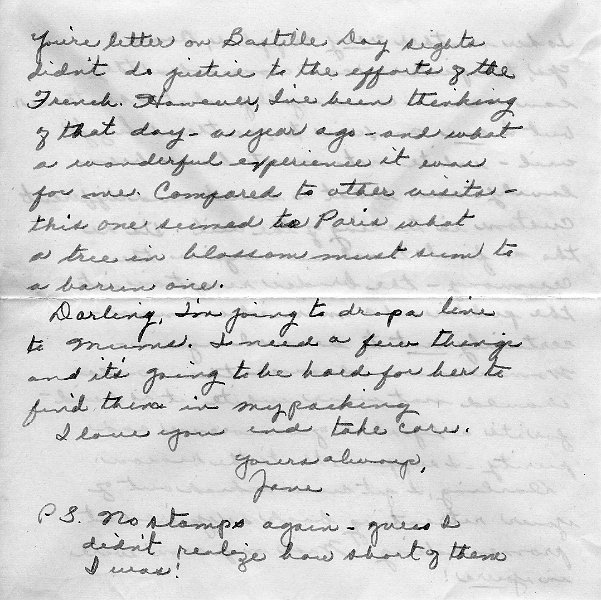 You're letter on Bastille Day sights
didn't do justice to the efforts of the
French. However, I've been thinking
of that day - a year ago - and what
a wonderful experience it was
for me. Compared to other visits -
this one seemed to Paris what
a tree in blossom must seem to
a barrin one.
Darling, I'm going to drop a line
to Mums. I need a few things
and it's going to be hard for her to
find them in my packing
I love you and take care.
Yours always,
Jane
P.S. No stamps again - guess I
didn't realize how short of them
I was!